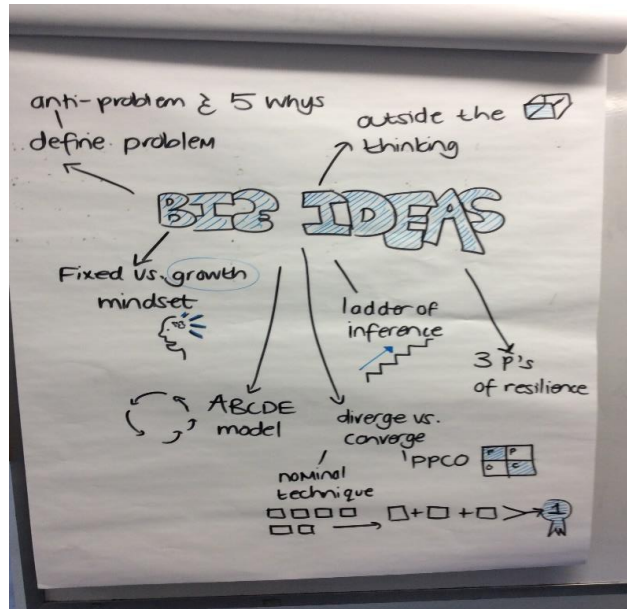 anti-problem & 5 whys
define problem
outside the
thinking
BIG IDEAS
Fixed vs. growth
mindset
ladder of
inference
3 P's
of resilience
ABCDE
model
diverge vs.
converge
PPCO
P P
O C
nominal
technique
+ +
1